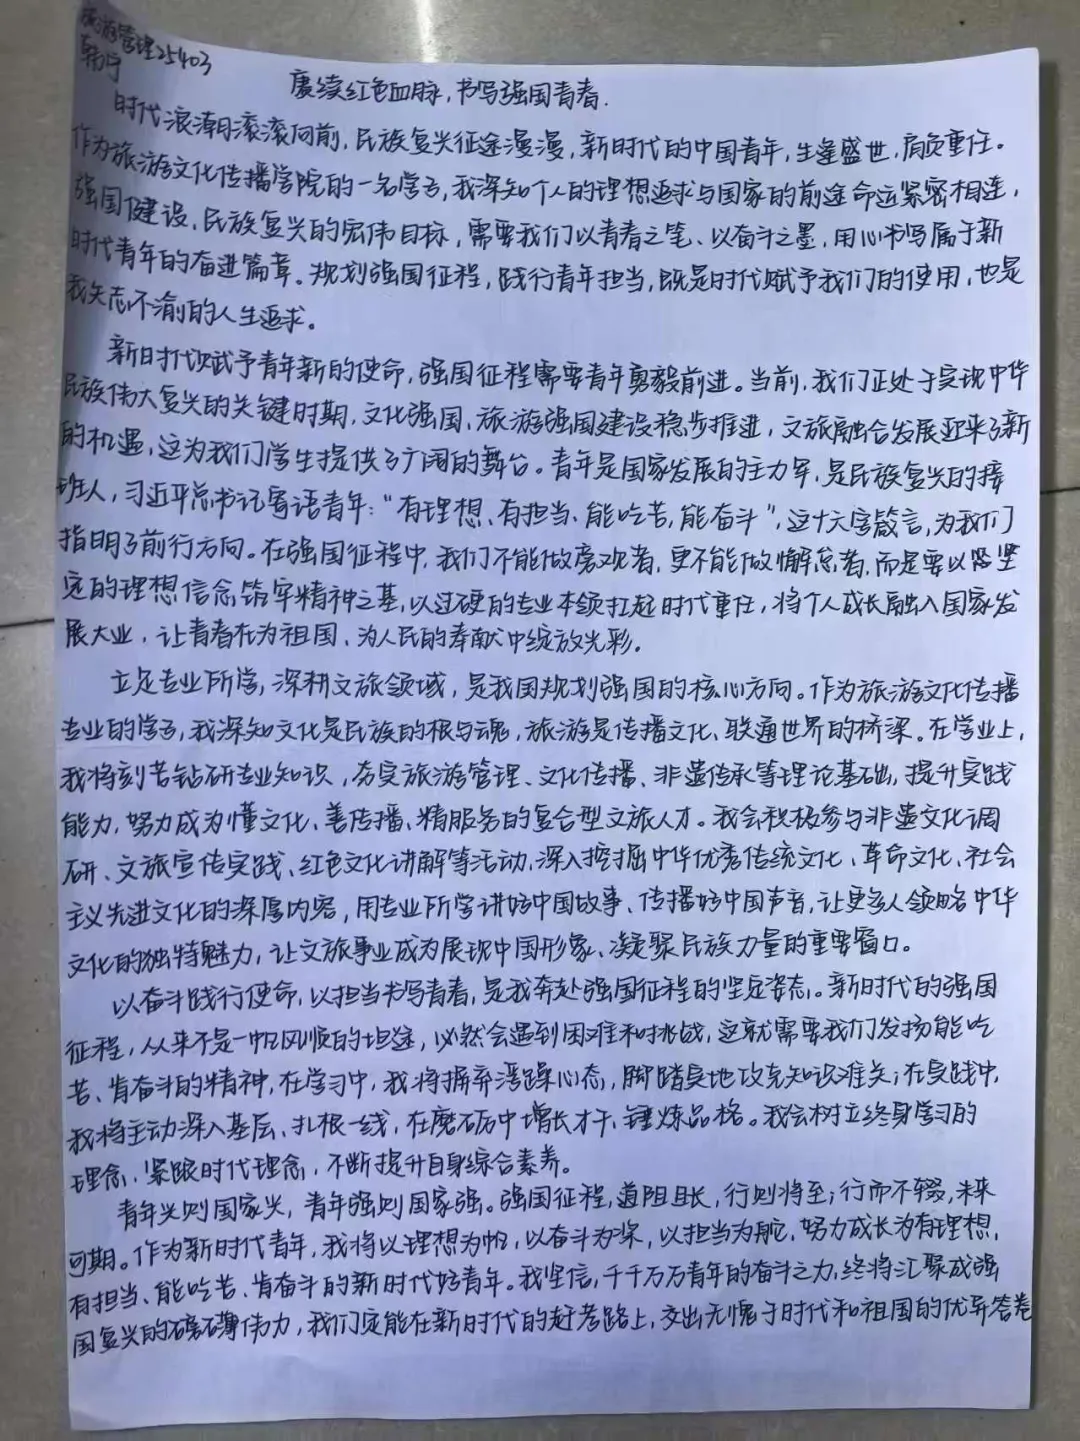 旅游管理25403
韩宁
赓续红色血脉，书写强国青春.
时代浪潮滚滚向前，民族复兴征途漫漫，新时代的中国青年，生逢盛世，肩负重任。
作为旅游文化传播学院的一名学子，我深知个人的理想追求与国家的前途命运紧密相连，
强国建设、民族复兴的宏伟目标，需要我们以青春之笔、以奋斗之墨，用心书写属于新
时代青年的奋进篇章。规划强国征程，践行青年担当，既是时代赋予我们的使用，也是
我矢志不渝的人生追求。
新时代赋予青年新的使命，强国征程需要青年勇毅前进。当前，我们正处于实现中华
民族伟大复兴的关键时期，文化强国、旅游强国建设稳步推进，文旅融合发展迎来了新
的机遇，这为我们学生提供了广阔的舞台。青年是国家发展的主力军，是民族复兴的接
班人，习近平总书记寄语青年：“有理想、有担当、能吃苦、能奋斗”，这十六字箴言，为我们
指明了前行方向。在强国征程中，我们不能做旁观者，更不能做懈怠者，而是要以坚
定的理想信念筑牢精神之基，以过硬的专业本领扛起时代重任，将个人成长融入国家发
展大业，让青春在为祖国、为人民的奉献中绽放光彩。
立足专业所学，深耕文旅领域，是我国规划强国的核心方向。作为旅游文化传播
专业的学子，我深知文化是民族的根与魂，旅游是传播文化、联通世界的桥梁。在学业上，
我将刻苦钻研专业知识，夯实旅游管理、文化传播、非遗传承等理论基础，提升实践
能力，努力成为懂文化、善传播、精服务的复合型文旅人才。我会积极参与非遗文化调
研、文旅宣传实践、红色文化讲解等活动，深入挖掘中华优秀传统文化、革命文化、社会
主义先进文化的深厚内容，用专业所学讲好中国故事、传播好中国声音，让更多人领略中华
文化的独特魅力，让文旅事业成为展现中国形象、凝聚民族力量的重要窗口。
以奋斗践行使命，以担当书写青春，是我奔赴强国征程的坚定姿态。新时代的强国
征程，从来不是一帆风顺的坦途，必然会遇到困难和挑战，这就需要我们发扬能吃
苦、肯奋斗的精神，在学习中，我将摒弃浮躁心态，脚踏实地攻克知识难关；在实践中，
我将主动深入基层、扎根一线，在磨砺中增长才干、锤炼品格。我会树立终身学习的
理念，紧跟时代理念，不断提升自身综合素养。
青年兴则国家兴，青年强则国家强。强国征程，道阻且长，行则将至；行而不辍，未来
可期。作为新时代青年，我将以理想为帆，以奋斗为桨，以担当为舵，努力成长为有理想，
有担当、能吃苦、肯奋斗的新时代好青年。我坚信，千千万万青年的奋斗之力，终将汇聚成强
国复兴的磅礴伟力，我们定能在新时代的赶考路上，交出无愧于时代和祖国的优异答卷